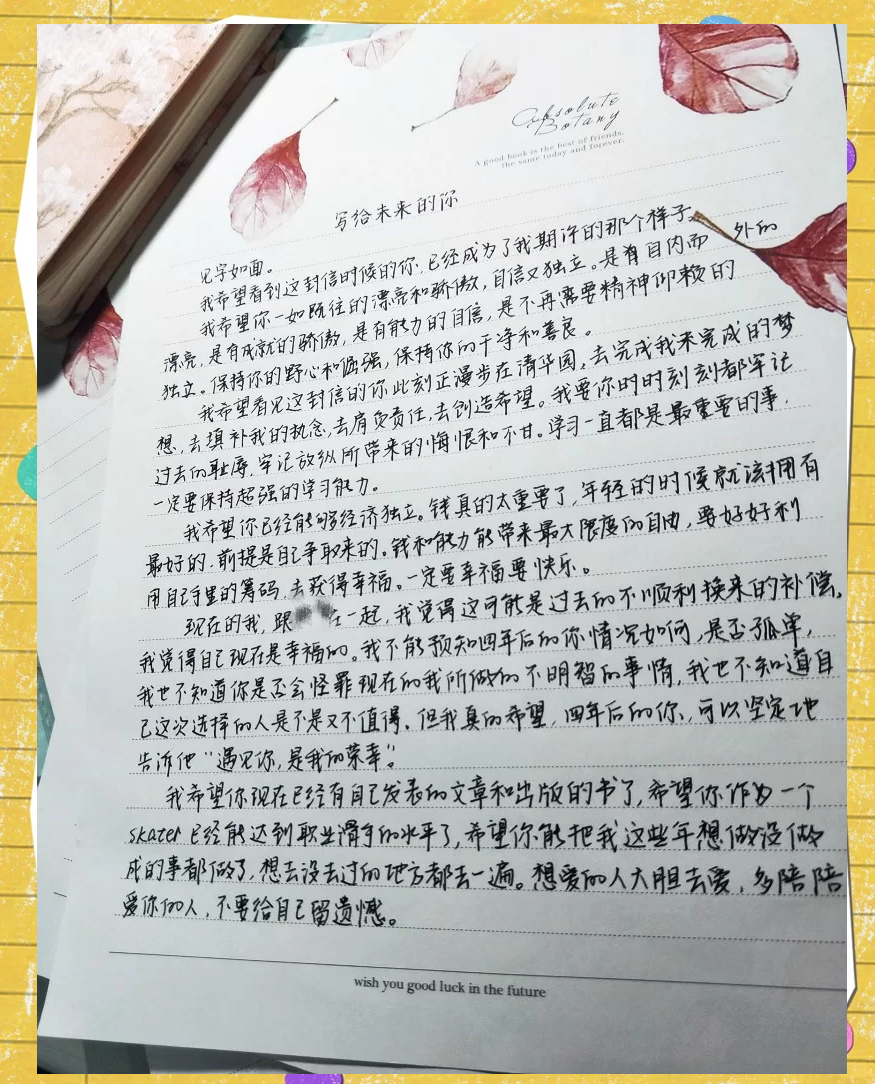 Absolute
Botany
A good book is the best of friends,
the same today and forever.
写给未来的你
见字如面。
我希望看到这封信时候的你,已经成为了我期许的那个样子。
我希望你一如既往的漂亮和骄傲,自信又独立。是有自内而外的
漂亮,是有成就的骄傲,是有能力的自信,是不再需要精神仰赖的
独立。保持你的野心和倔强,保持你的干净和善良。
我希望看见这封信的你此刻正漫步在清华园,去完成我未完成的梦
想,去填补我的执念,去肩负责任,去创造希望。我要你时时刻刻都牢记
过去的耻辱,牢记放纵所带来的悔恨和不甘。学习一直都是最重要的事,
一定要保持超强的学习能力。
我希望你已经能够经济独立。钱真的太重要了,年轻的时候就该拥有
最好的,前提是自己争取来的。钱和能力能带来最大限度的自由,要好好利
用自己手里的筹码,去获得幸福。一定要幸福要快乐。
现在的我,跟 在一起,我觉得这可能是过去的不顺利换来的补偿,
我觉得自己现在是幸福的。我不能预知四年后的你情况如何,是否孤单,
我也不知道你是否会怪罪现在的我所做的不明智的事情,我也不知道自
己这次选择的人是不是又不值得。但我真的希望,四年后的你,可以坚定地
告诉他“遇见你,是我的荣幸”。
我希望你现在已经有自己发表的文章和出版的书了,希望你作为一个
skater 已经能达到职业滑手的水平了,希望你能把我这些年想做没做
成的事都做了,想去没去过的地方都去一遍。想爱的人大胆去爱,多陪陪
爱你的人,不要给自己留遗憾。
wish you good luck in the future